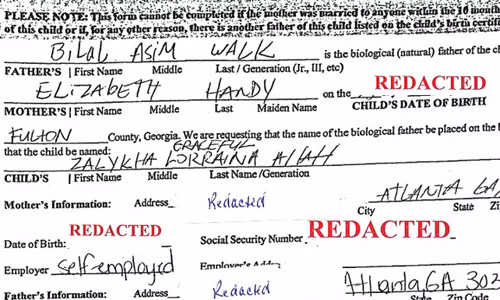 PLEASE NOTE: This form cannot be completed if the mother was married to anyone within the 10 month
of this child or if, for any other reason, there is another father of this child listed on the child's birth certif
BilAl Asim WALK is the biological (natural) father of the c
FATHER'S | First Name Middle Last / Generation (Jr., III, etc) REDACTED
ELIZABETH HANDY on the
MOTHER'S | First Name Middle Last Maiden Name CHILD'S DATE OF BIRTH
FULTON County, Georgia. We are requesting that the name of the biological father be placed on the
that the child be named: GRACEFUL
ZALYKHA LORRAINA AllAH
CHILD'S | First Name Middle Last Name /Generation
ATLANTA GA
Mother's Information: Address Redacted City State Zi
REDACTED REDACTED
Date of Birth: Social Security Number
Employer self-employed Employer's
Atlanta, GA 302
Father's Information : Address Redacted State Zip Code